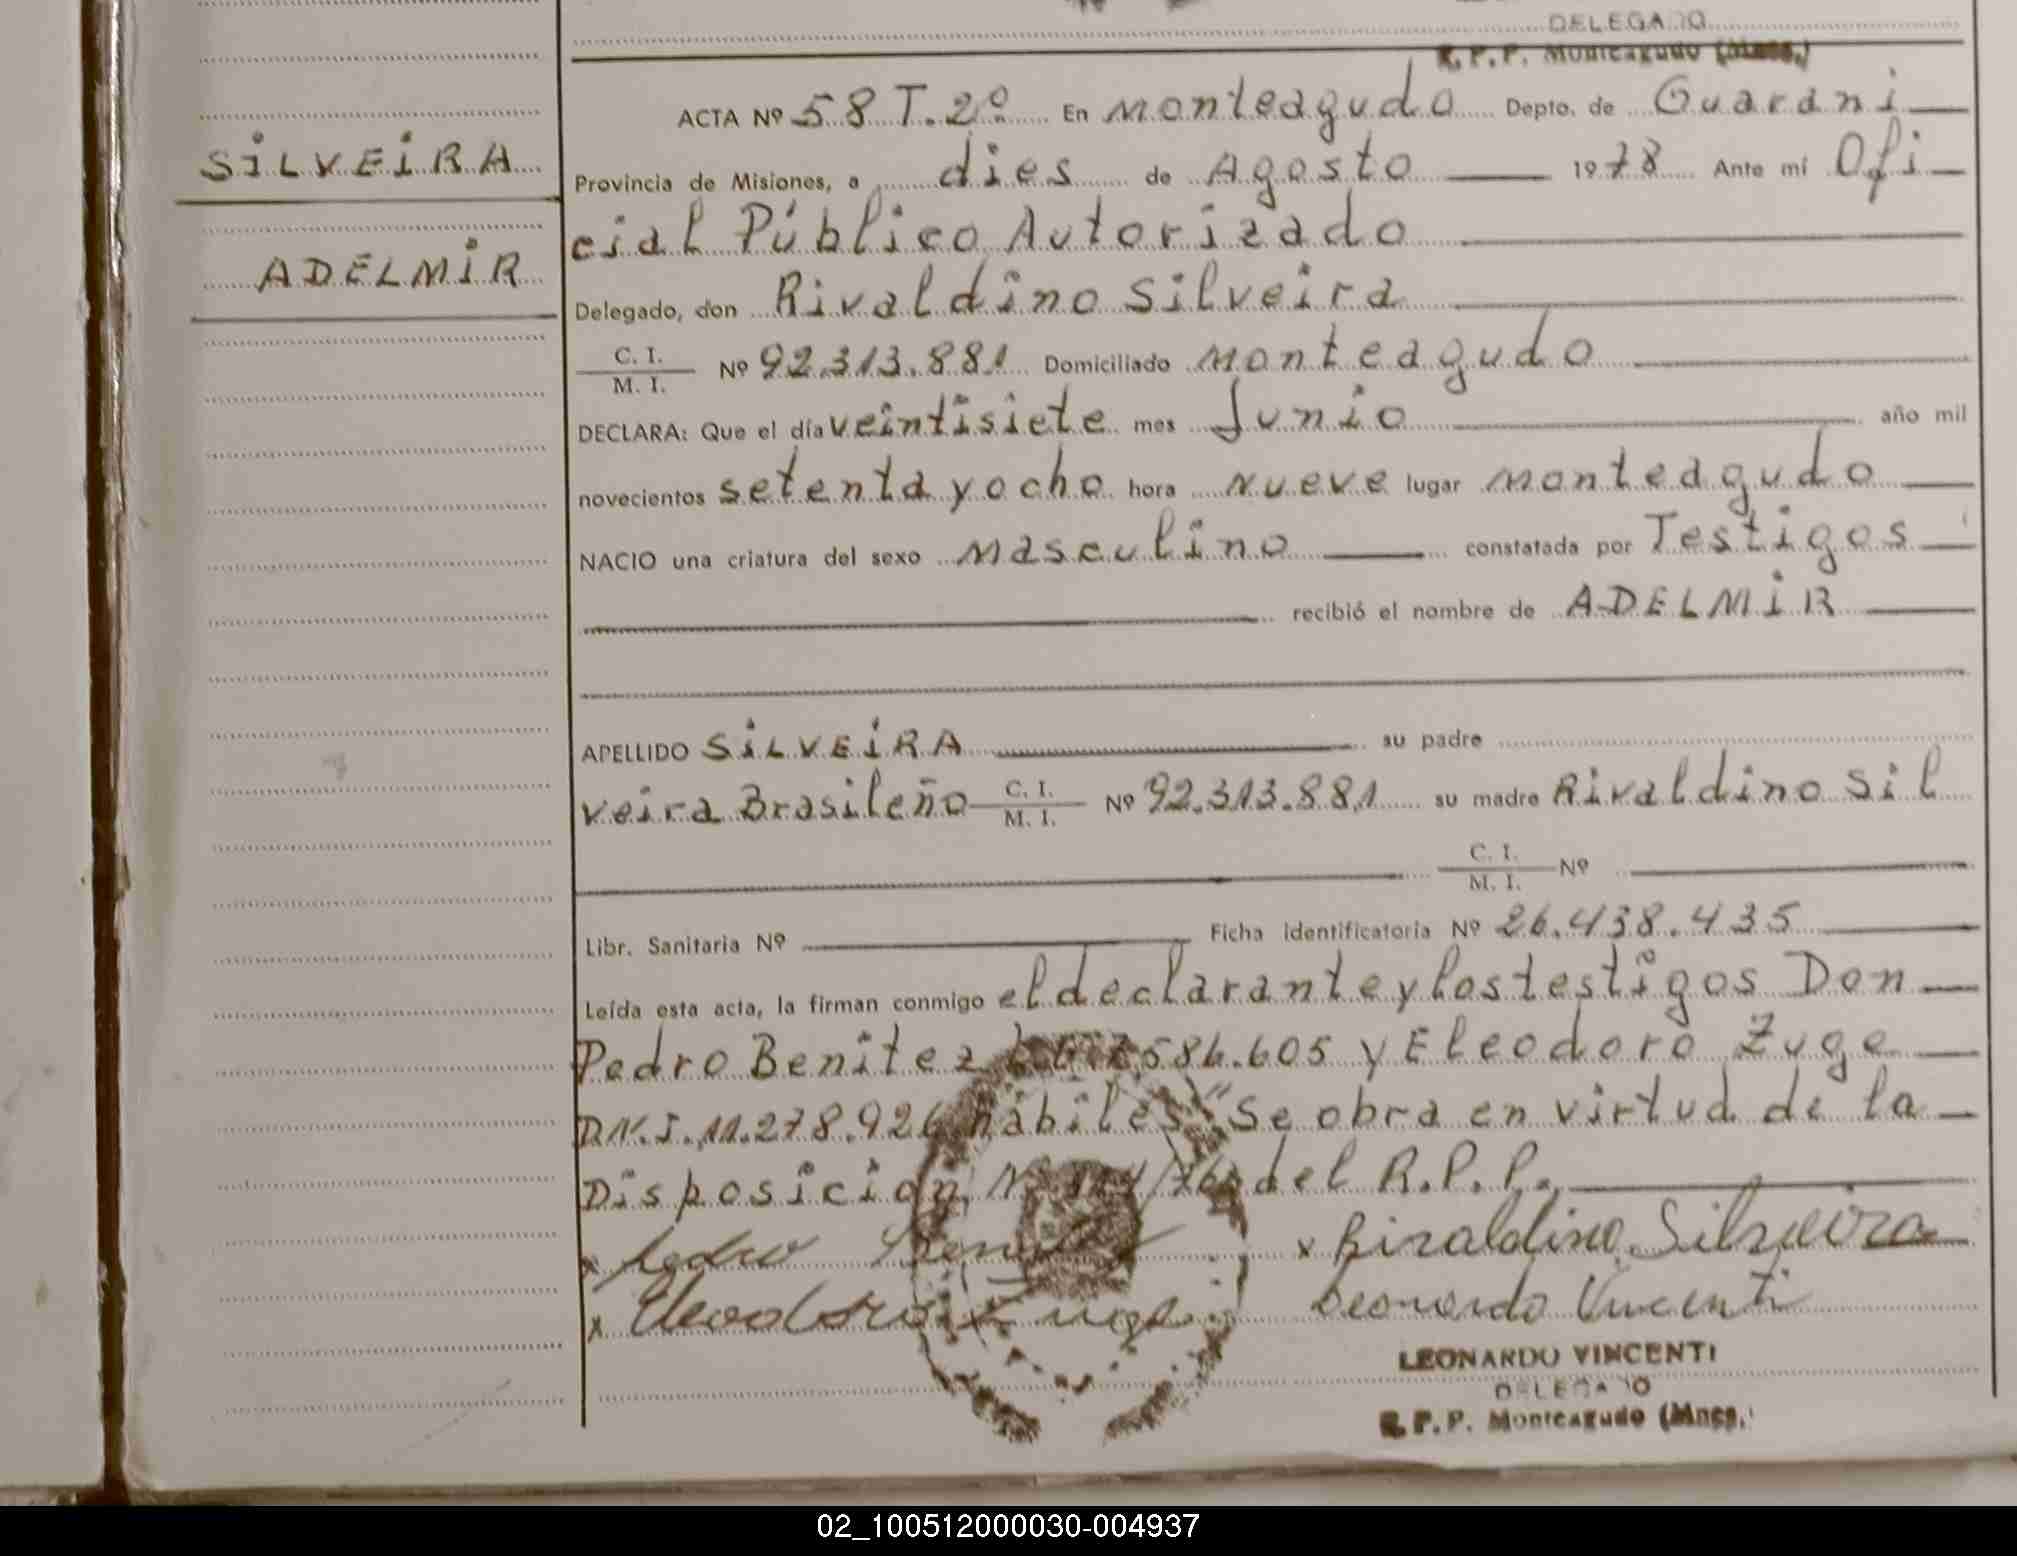 DELEGADO
R. P. P. Monteagudo (Mnes.)
SILVEIRA
ADELMIR
ACTA Nº 58 T. 2º En Monteagudo Depto. de Guarani
Provincia de Misiones, a dies de Agosto 1978 Ante mí Ofi
cial Público Autorizado
Delegado, don Rivaldino Silveira
C. I.
M. I.
Nº 92.313.881 Domiciliado Monteagudo
DECLARA: Que el día veintisiete mes Junio año mil
novecientos setenta y ocho hora Nueve lugar Monteagudo
NACIO una criatura del sexo Masculino constatada por Testigos
recibió el nombre de ADELMIR
APELLIDO SILVEIRA su padre
veira Brasileño C. I. Nº 92.313.881 su madre Rivaldino Sil
M. I.
C. I.
M. I.
Nº
Libr. Sanitaria Nº Ficha identificatoria Nº 26.438.435
Leída esta acta, la firman conmigo el declarante y los testigos Don
Pedro Benitez 584.605 y Eleodoro Zuge
D.N.I. 11.278.926 hábiles "Se obra en virtud de la
Disposición Nº /76 del R.P.P.
x Pedro Benitez x Rivaldino Silveira
x Eleodoro Zuge Leonardo Vincenti
LEONARDO VINCENTI
DELEGADO
R. P. P. Monteagudo (Mnes.
02_100512000030-004937